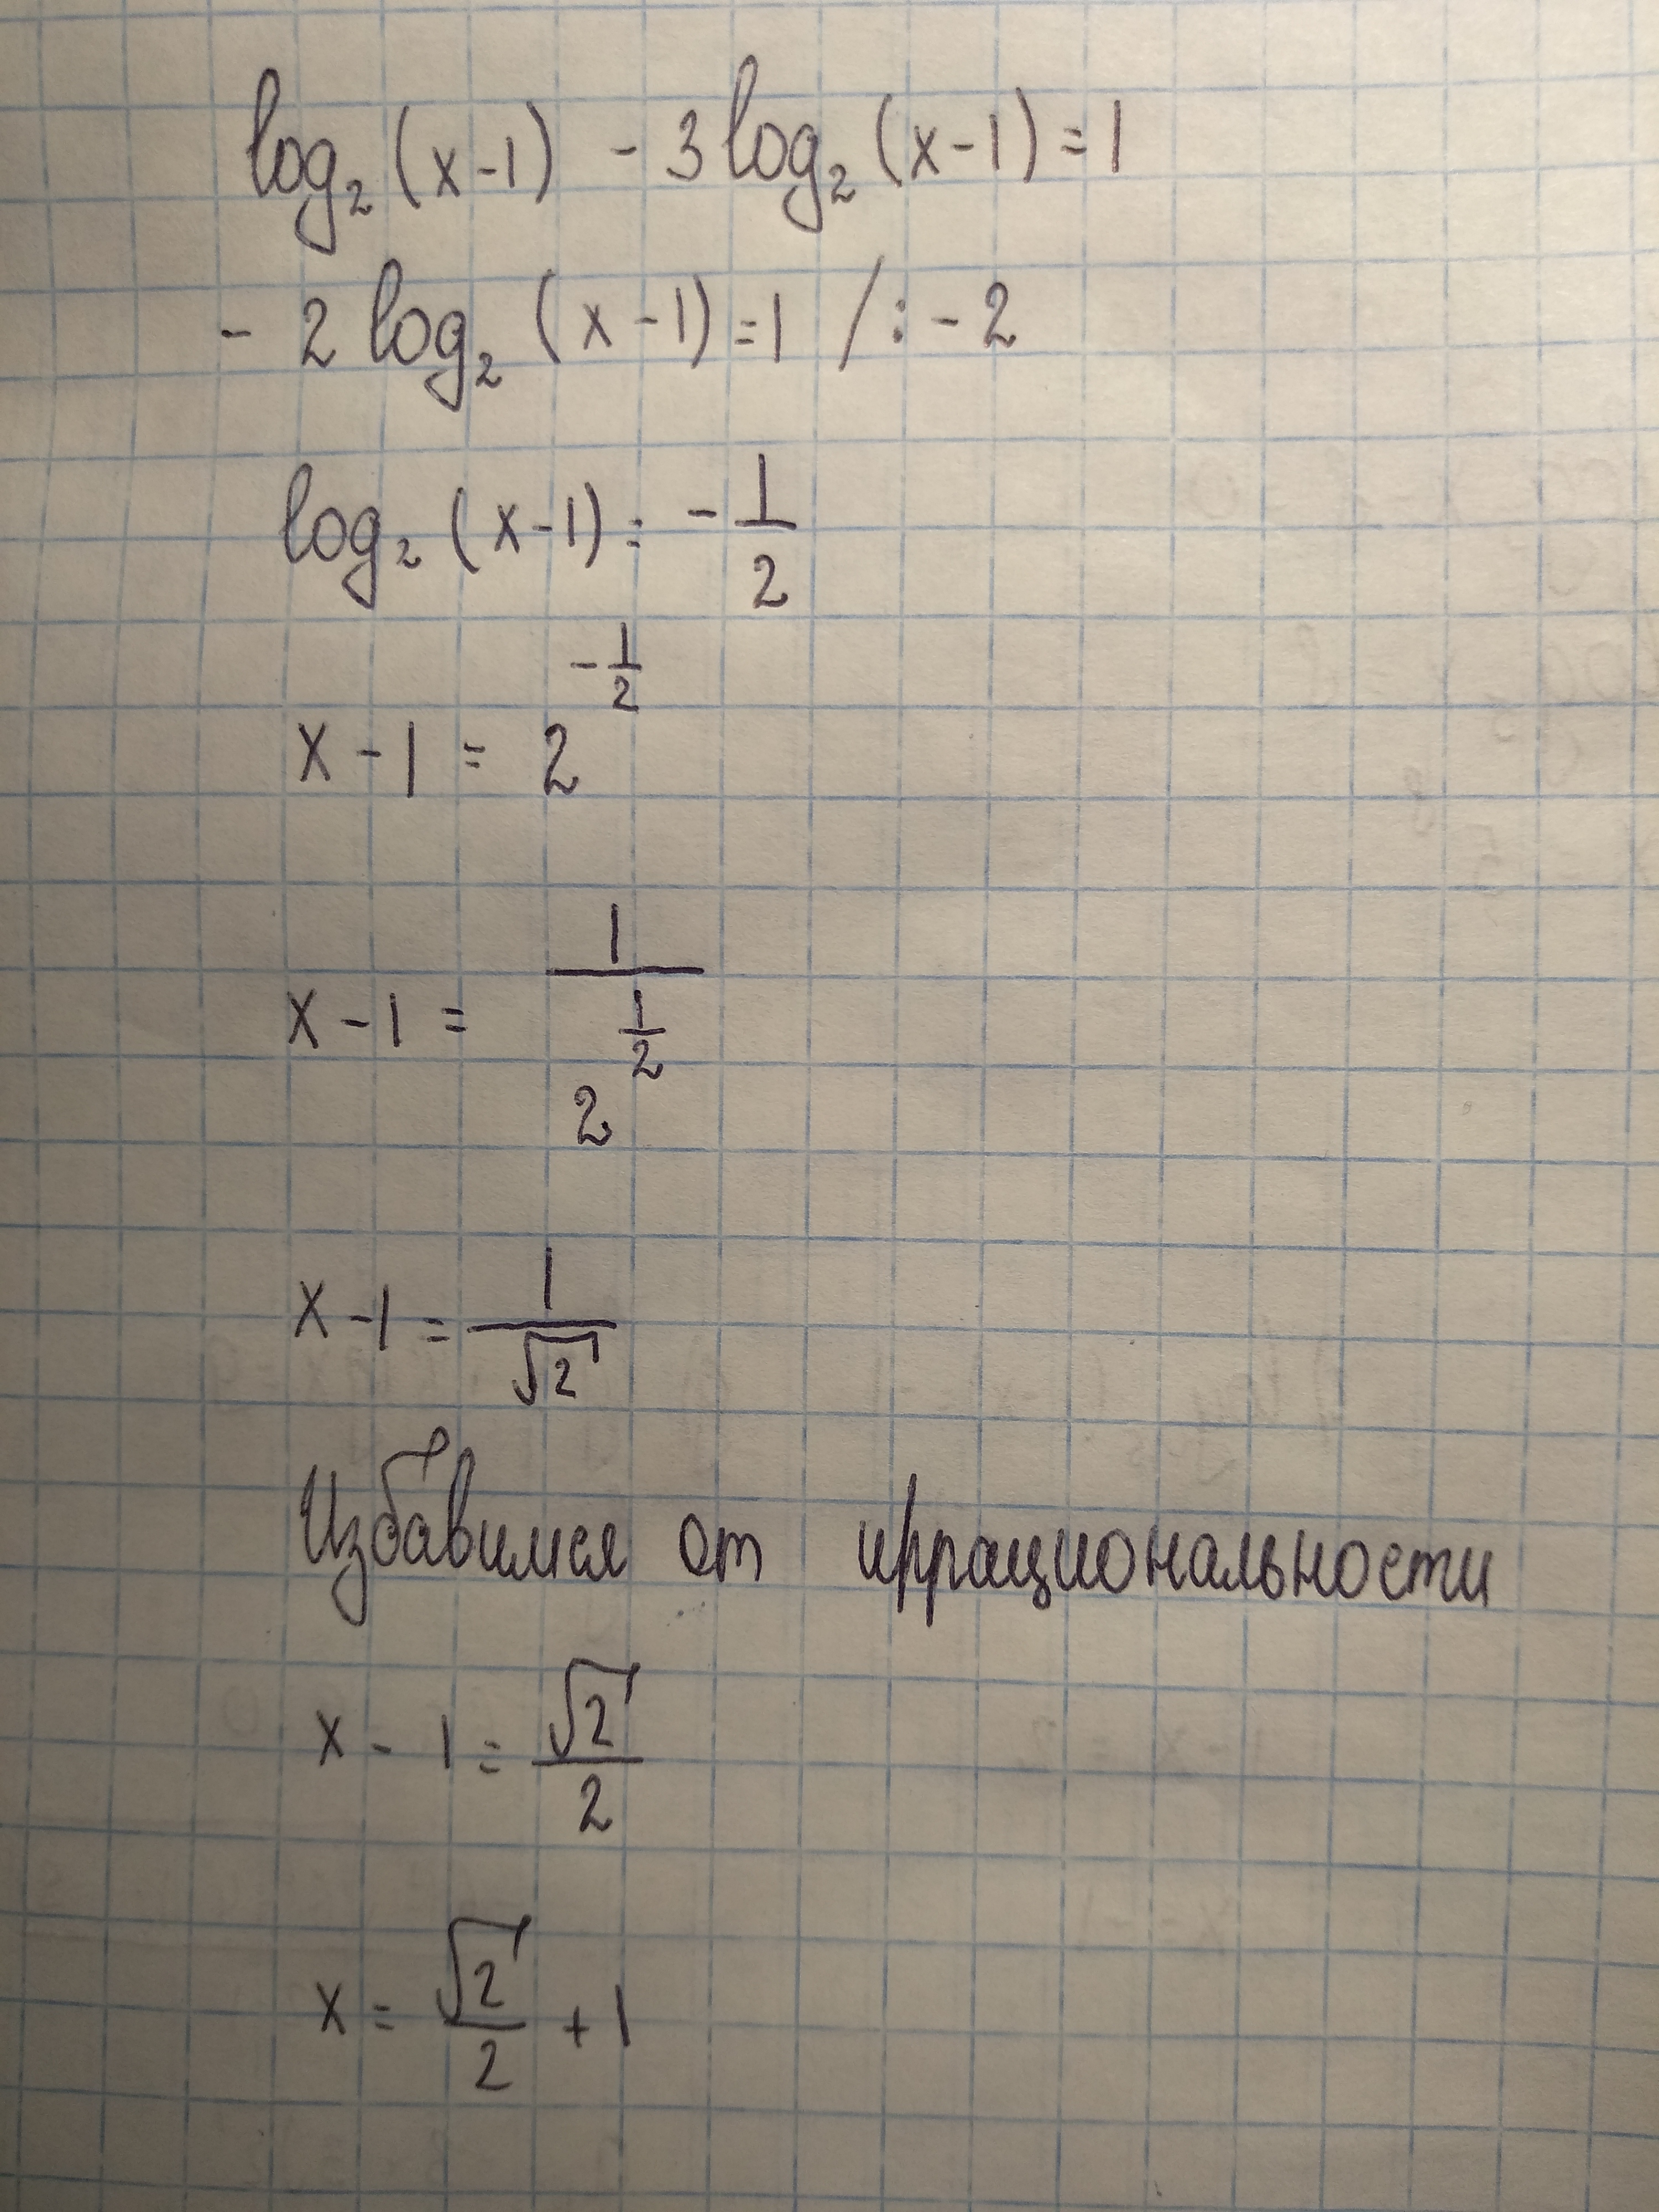 log₂ (x-1) - 3 log₂ (x-1) = 1
- 2 log₂ (x-1) = 1 /: - 2
log₂ (x-1) = - 1/2
x - 1 = 2^(-1/2)
x - 1 = 1/2^(1/2)
x - 1 = 1/√2
Избавимся от иррациональности
x - 1 = √2/2
x = √2/2 + 1